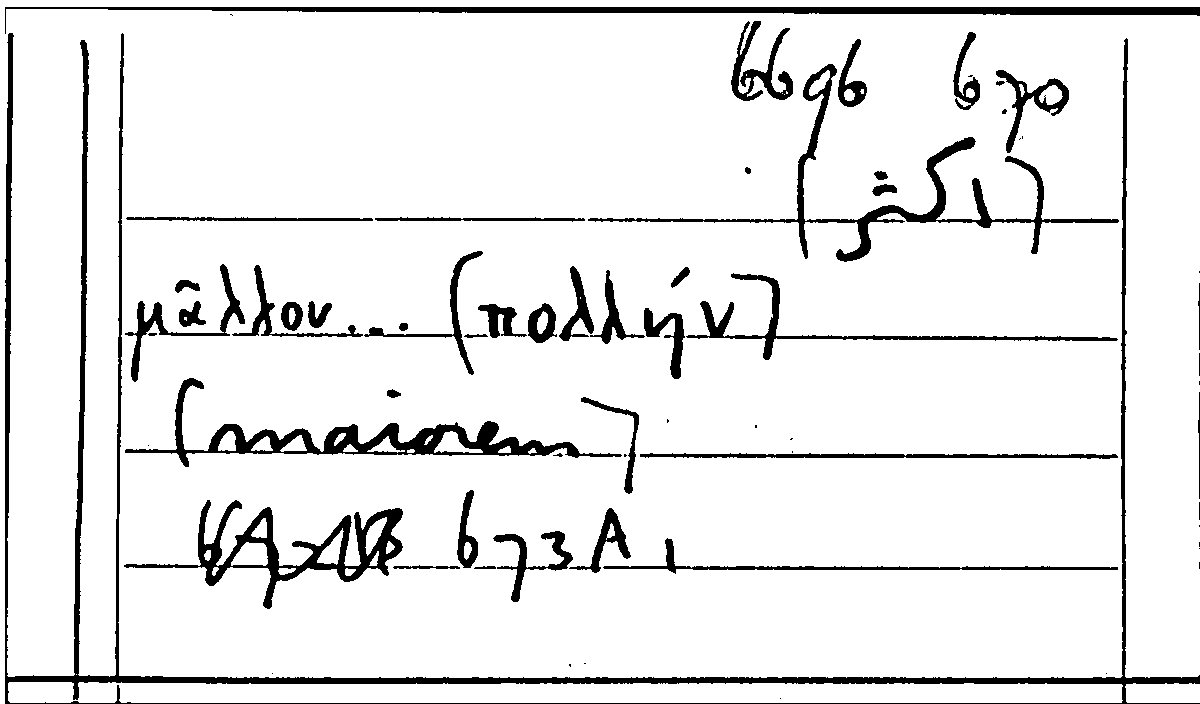 6696 670
μᾶλλον... (πολλήν)
(maiorem)
673A1